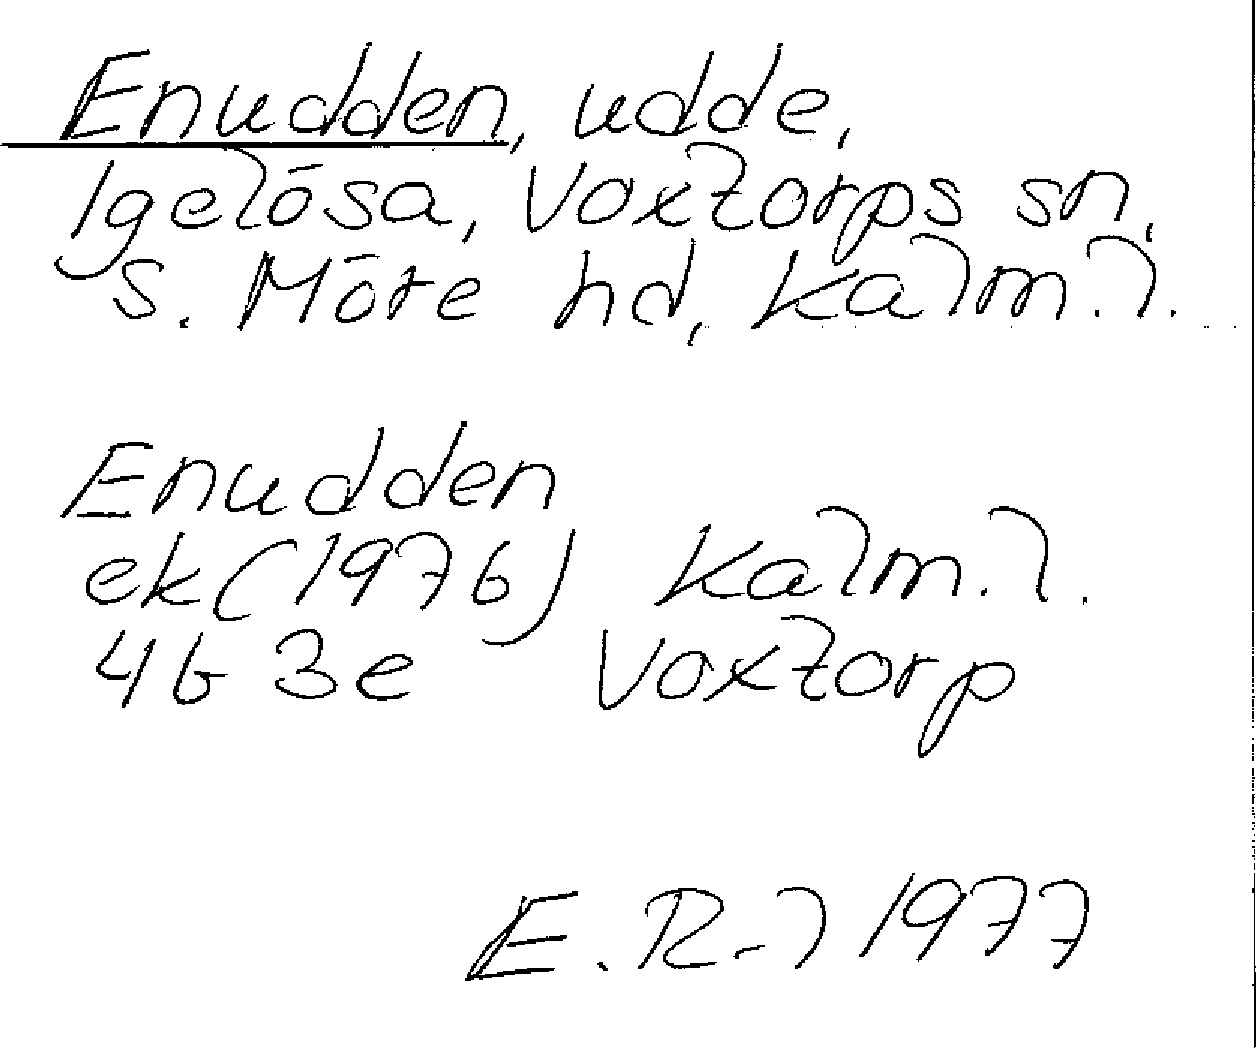 Enudden, udde,
Igelösa, Voxtorps sn,
S. Möre hd, Kalm. l.
Enudden
ek (1976) Kalm. l.
4G 3e Voxtorp
E. R-l 1977